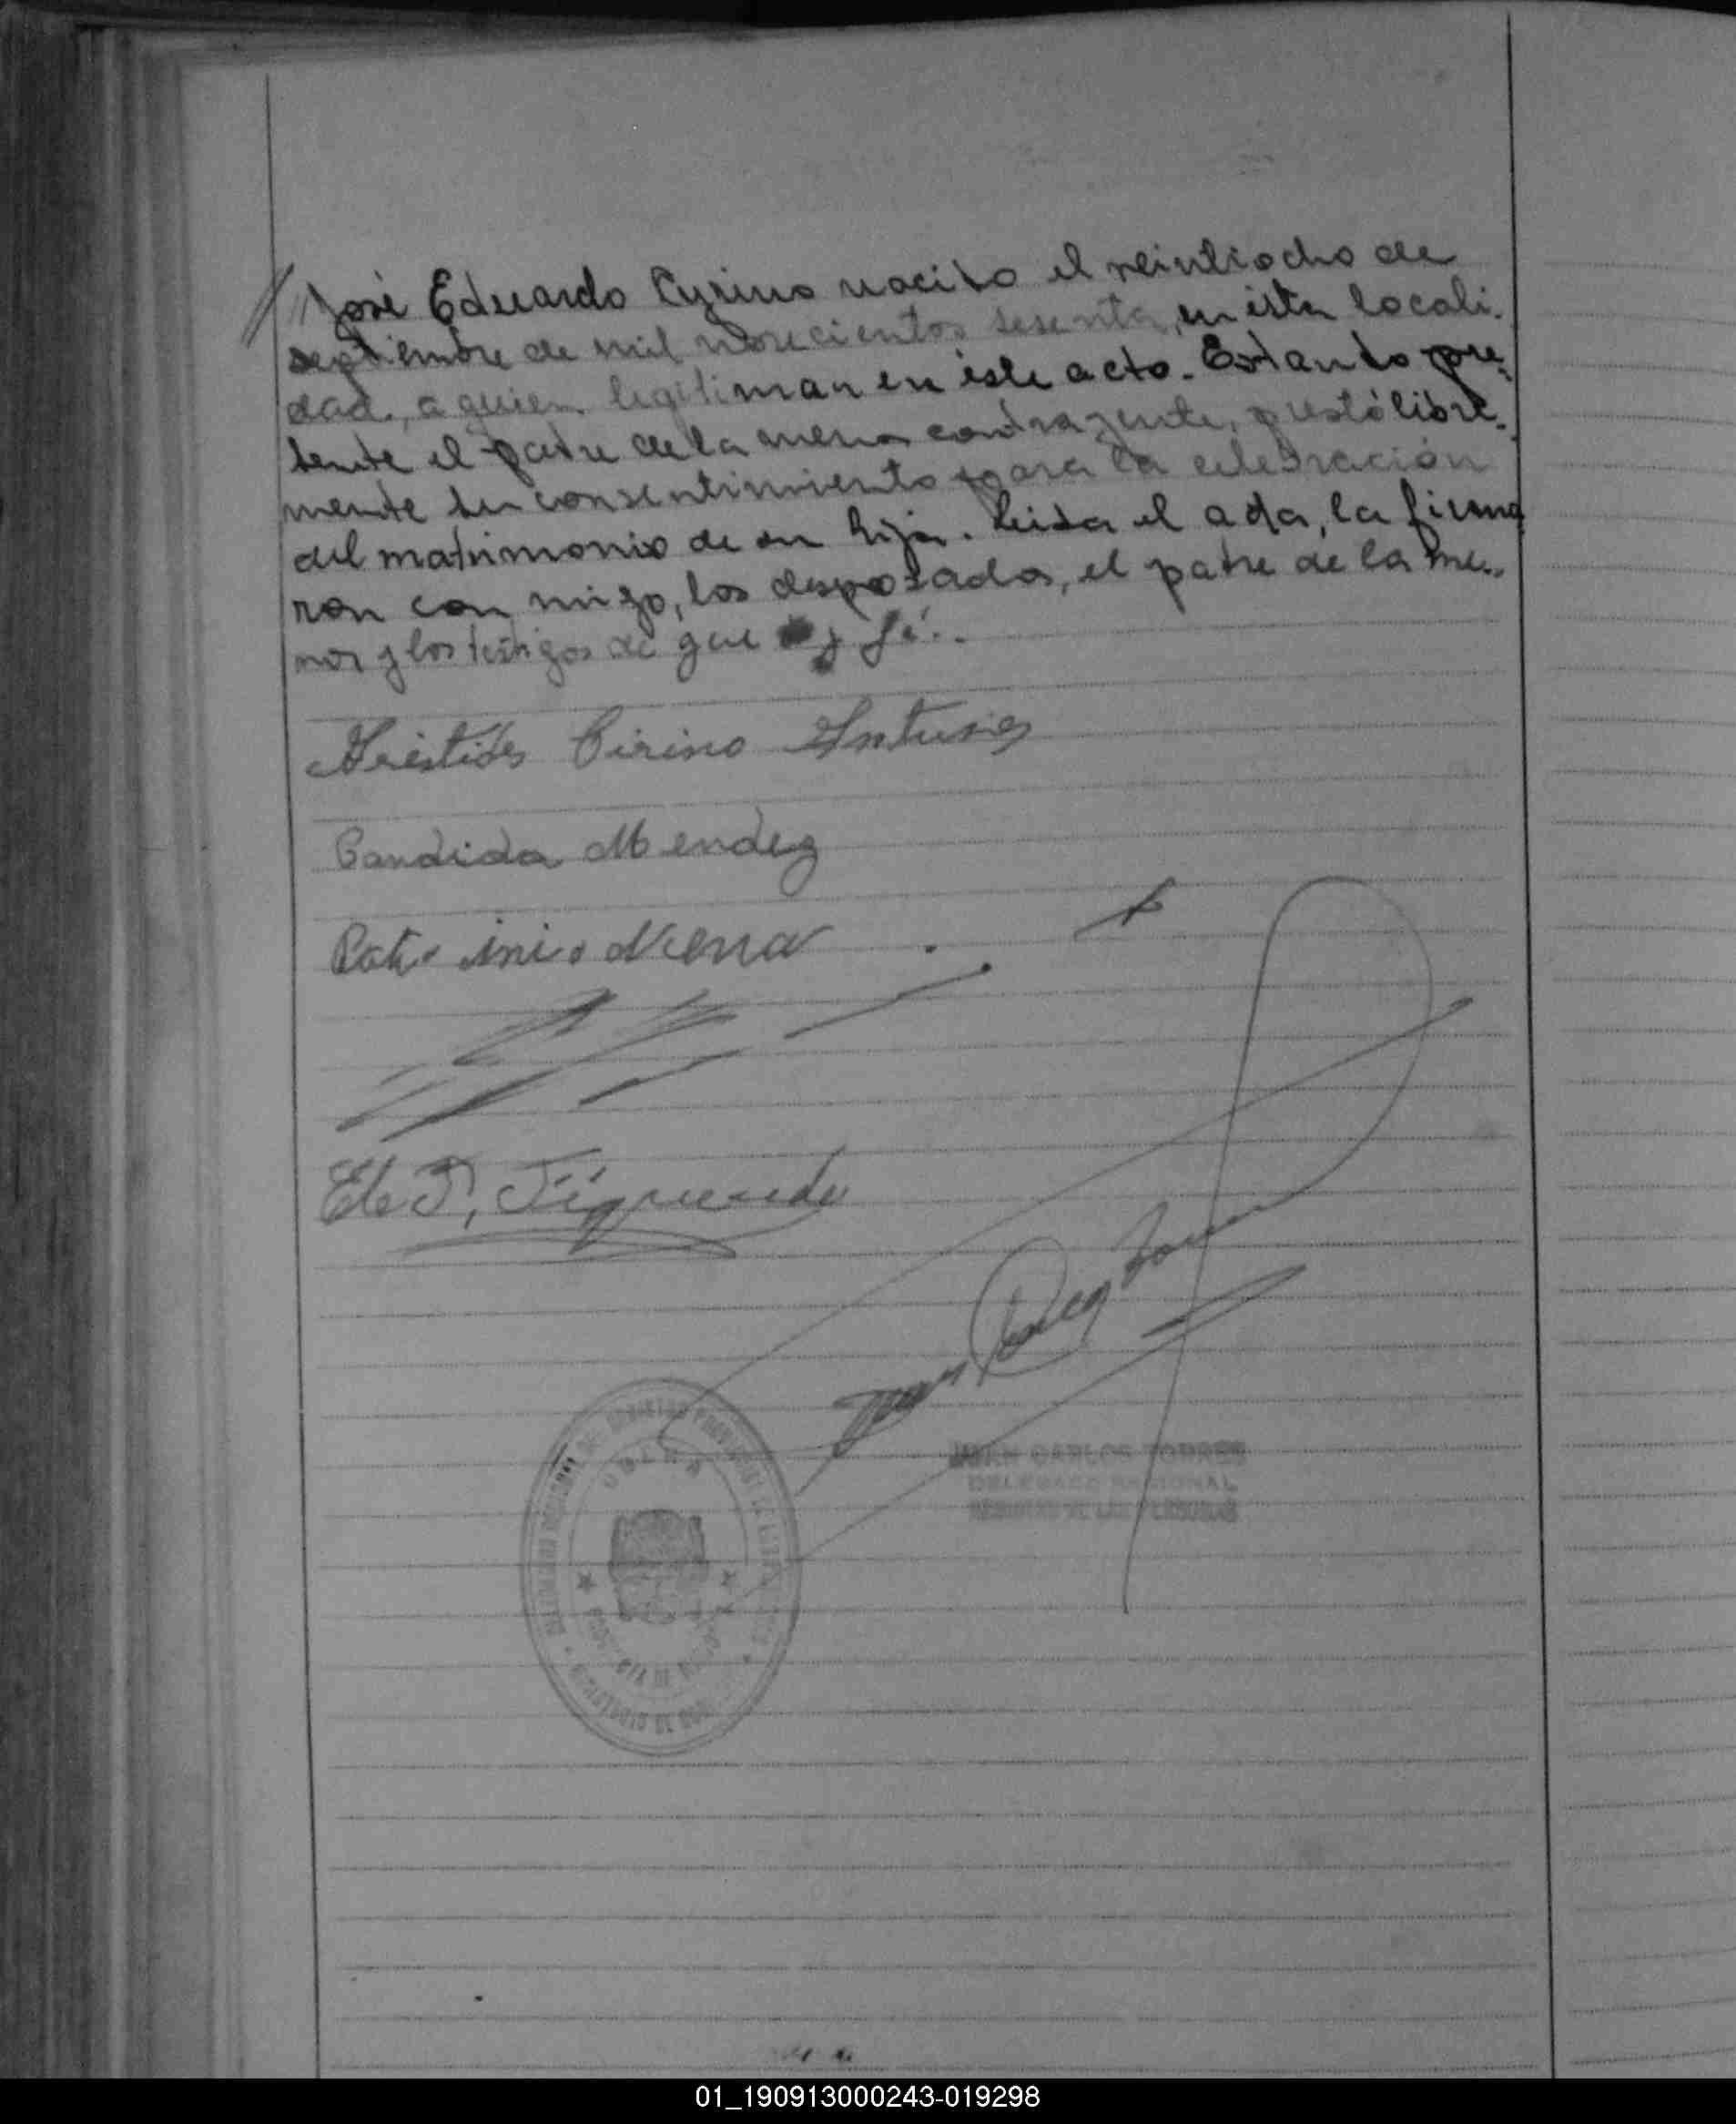 José Eduardo Cyrino nacido el veintiocho de
septiembre de mil novecientos sesenta, en ésta locali-
dad, a quien legitiman en éste acto. Estando pre-
sente el padre de la menor contrayente, prestó libre-
mente su consentimiento para la celebración
del matrimonio de su hija. Leida el acta, la firma
ron con migo, los desposados, el padre de la me-
nor y los testigos de que doy fé.
Arístides Cirino Antunes
Candida Mendez
Nena
Figueredo
JUAN CARLOS TORRES
DELEGADO REGIONAL
REGISTRO DE LAS PERSONAS
01_190913000243-019298